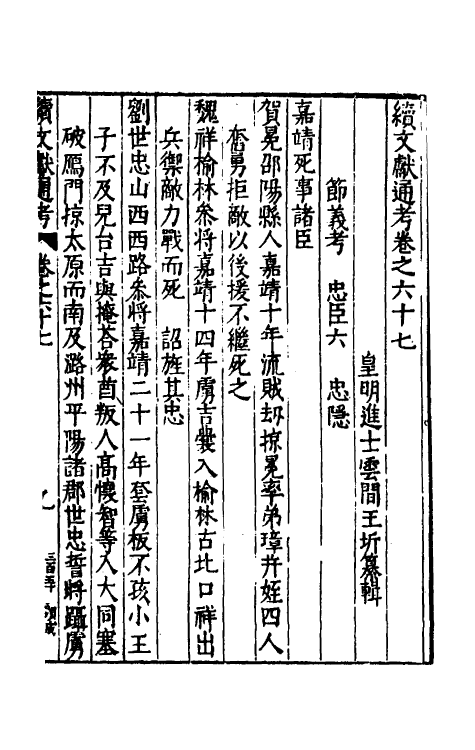 續文獻通考卷之六十七
皇明進士雲間王圻纂輯
節義考　忠臣六　忠隱
嘉靖死事諸臣
賀冕邵陽縣人嘉靖十年流賊刼掠冕率弟璋并姪四人
奮勇拒敵以後援不繼死之
魏祥榆林叅將嘉靖十四年虜吉囊入榆林古北口祥出
兵禦敵力戰而死　詔旌其忠
劉世忠山西西路叅將嘉靖二十一年套虜板不孩小王
子不及兒台吉與掩荅衆酋叛人高懷智等入大同塞
破鴈門掠太原而南及潞州平陽諸郡世忠誓將躡虜
續文獻通考　卷之六十七